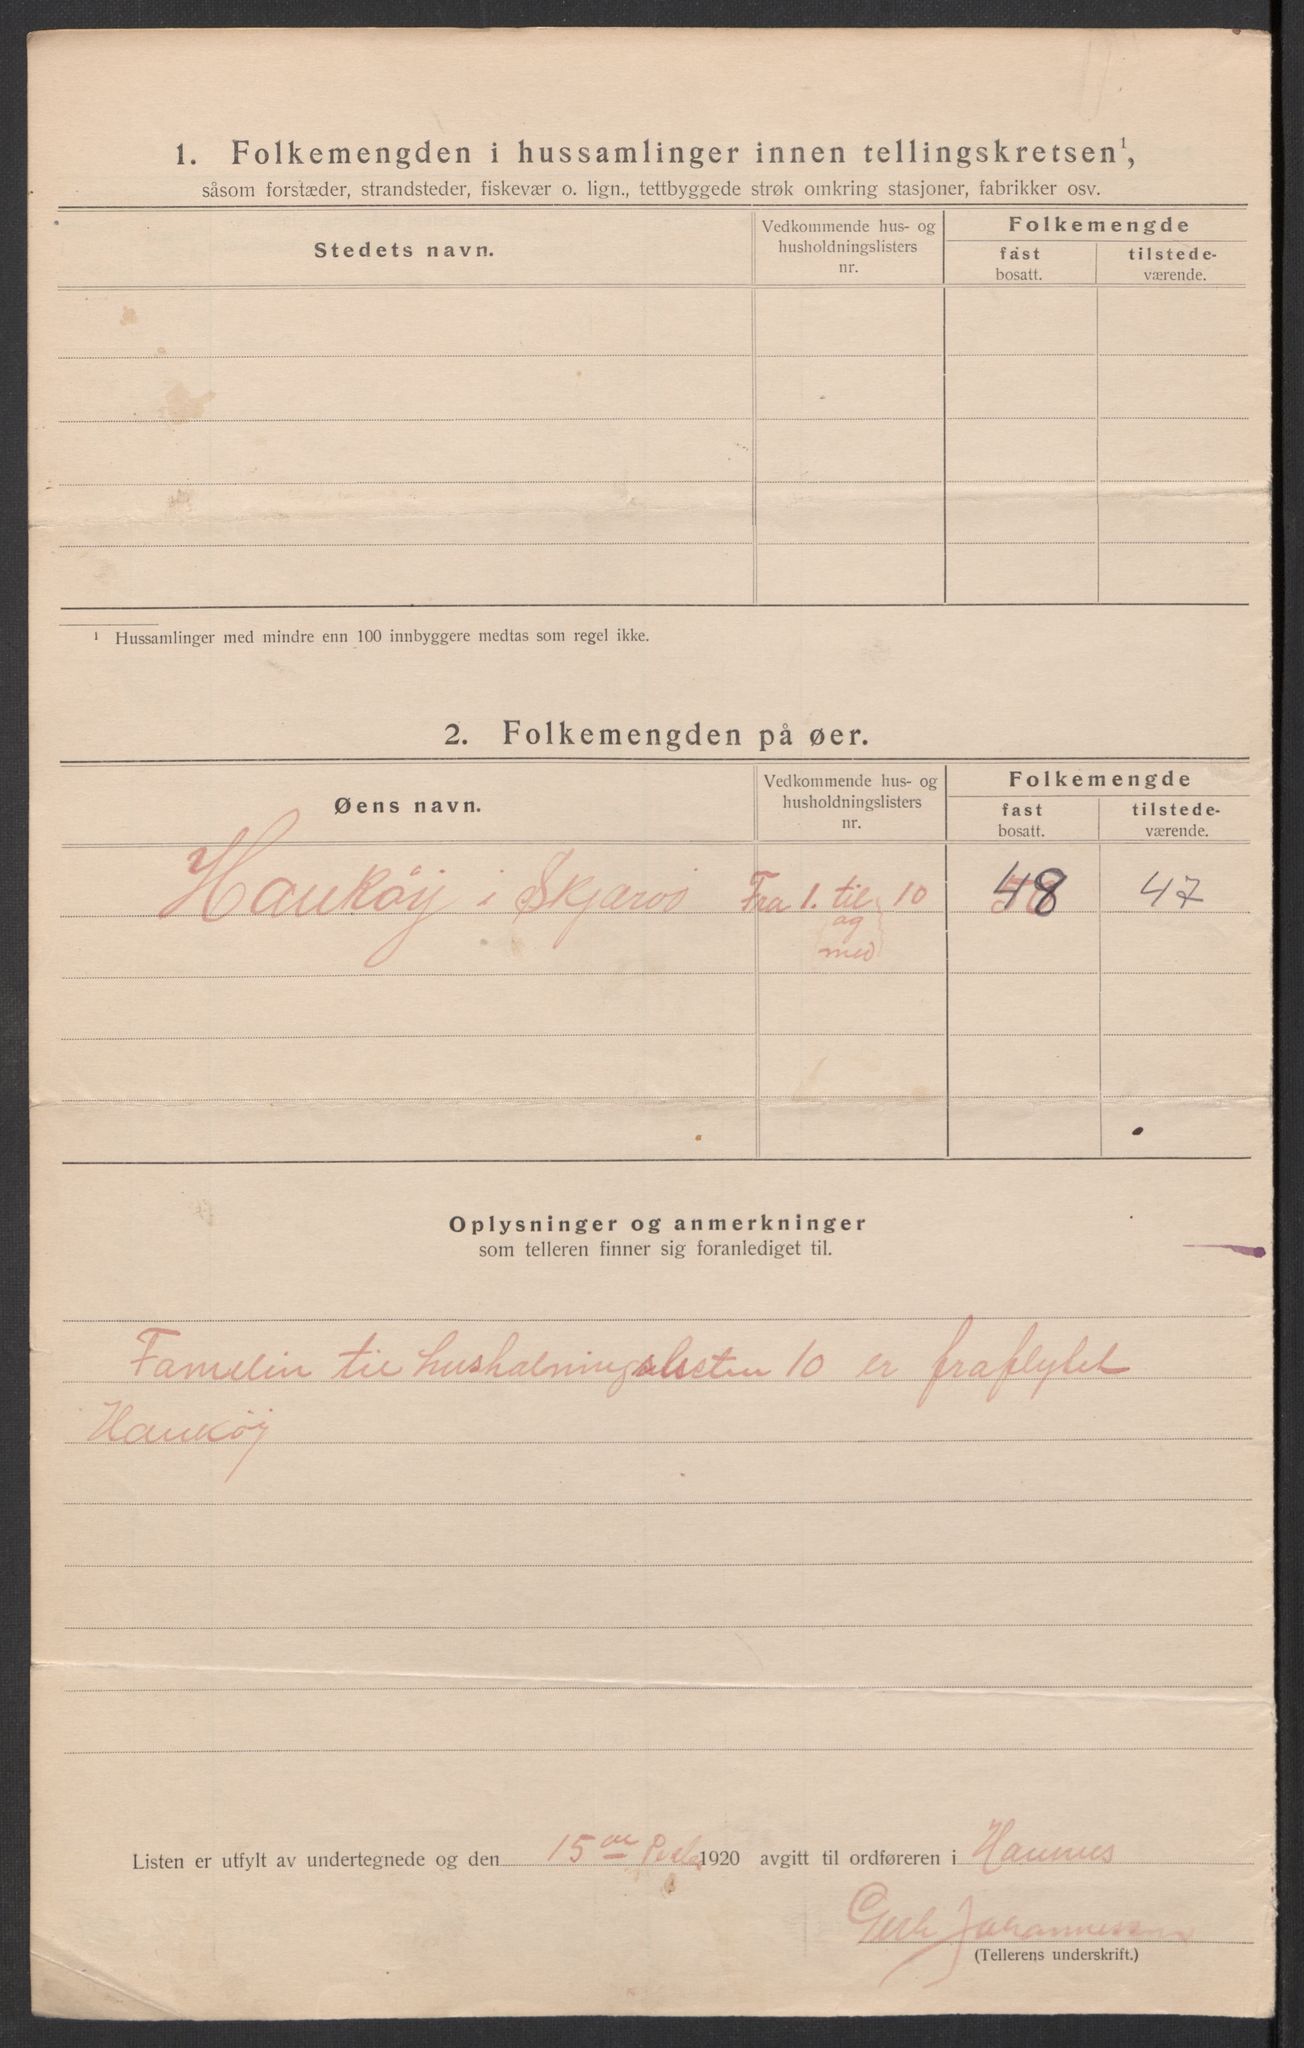 1. Folkemengden i hussamlinger innen tellingskretsen¹,
såsom forstæder, strandsteder, fiskevær o. lign., tettbyggede strøk omkring stasjoner, fabrikker osv.
Stedets navn.
Vedkommende hus- og
husholdningslisters
nr.
Folkemengde
fast
bosatt.
tilstede-
værende.
¹ Hussamlinger med mindre enn 100 innbyggere medtas som regel ikke.
2. Folkemengden på øer.
Øens navn.
Vedkommende hus- og
husholdningslisters
nr.
Folkemengde
fast
bosatt.
tilstede-
værende.
Haukøy i Skjærvø Fra 1. til 10 48 47
og
med
Oplysninger og anmerkninger
som telleren finner sig foranlediget til.
Famelin til husholningslisten 10 er fraflytet
Haukøy
Listen er utfylt av undertegnede og den 15 1920 avgitt til ordføreren i
Johannessen
(Tellerens underskrift.)